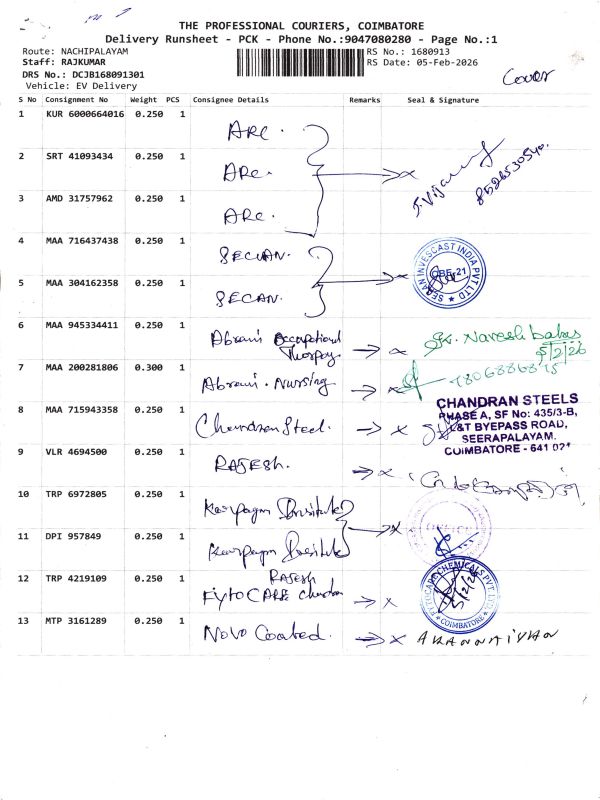 THE PROFESSIONAL COURIERS, COIMBATORE
Delivery Runsheet - PCK - Phone No.:9047080280 - Page No.:1
Route: NACHIPALAYAM
Staff: RAJKUMAR
DRS No.: DCJB168091301
Vehicle: EV Delivery
RS No.: 1680913
RS Date: 05-Feb-2026
Cover
S No Consignment No Weight PCS Consignee Details Remarks Seal & Signature
1 KUR 6000664016 0.250 1 ARC.
2 SRT 41093434 0.250 1 ARC.
3 AMD 31757962 0.250 1 ARC.
8526530540.
4 MAA 716437438 0.250 1 SECAN.
5 MAA 304162358 0.250 1 SECAN.
SEGAN INVESCAST INDIA PVT LTD
CBE-21
6 MAA 945334411 0.250 1 Abrami Occupational Therapy
Naresh babu
5/2/26
7 MAA 200281806 0.300 1 Abrami. Nursing
8 MAA 715943358 0.250 1 Chandran Steel.
CHANDRAN STEELS
PHASE A, SF No: 435/3-B,
L&T BYEPASS ROAD,
SEERAPALAYAM.
COIMBATORE - 641 021
9 VLR 4694500 0.250 1 RAJESH.
10 TRP 6972805 0.250 1 Karpagam Institute
11 DPI 957849 0.250 1 Karpagam Institute
12 TRP 4219109 0.250 1 RAJESH
FYTO CARE
CHEMICALS PVT. LTD
COIMBATORE
5/2/26
13 MTP 3161289 0.250 1 Novo Coated.